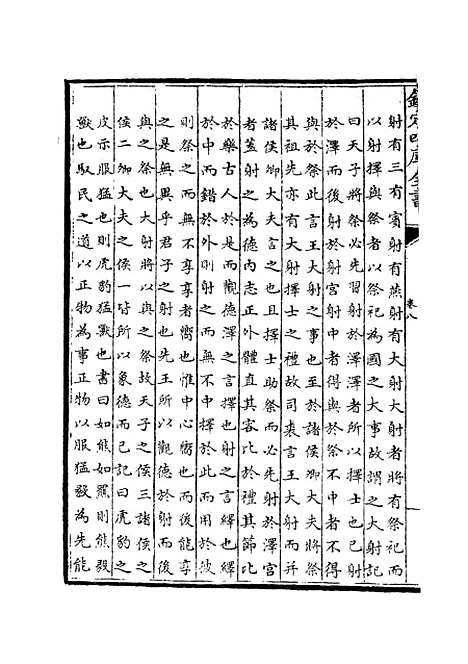 欽定四庫全書
卷八
射有三有賓射有燕射有大射大射者將有祭祀而
以射擇與祭者以祭祀為國之大事故謂之大射記
曰天子將祭必先習射於澤澤者所以擇士也已射
於澤而後射於射宮射中者得與於祭不中者不得
與於祭此言王大射之事也至於諸侯卿大夫將祭
其祖先亦有大射擇士之禮故司裘言王大射而并
諸侯卿大夫言之也且擇士助祭而必先射於澤宮
者蓋射之為德内志正外體直其容比於禮其節比
於樂古人於是而觀德澤之言擇也射之言繹也繹
於中而錯於外則射之而無不中擇於此而用於彼
則祭之而無不享享者嚮也惟中心嚮也而後能享
之是無異乎君子之射也先王所以觀德於射而後
與之祭也大射將以與之祭故天子之侯三諸侯之
侯二卿大夫之侯一皆所以象德而已記曰虎豹之
皮示服猛也則虎豹猛獸也書曰如熊如羆則熊毅
獸也馭民之道以正物為事正物以服猛毅為先能